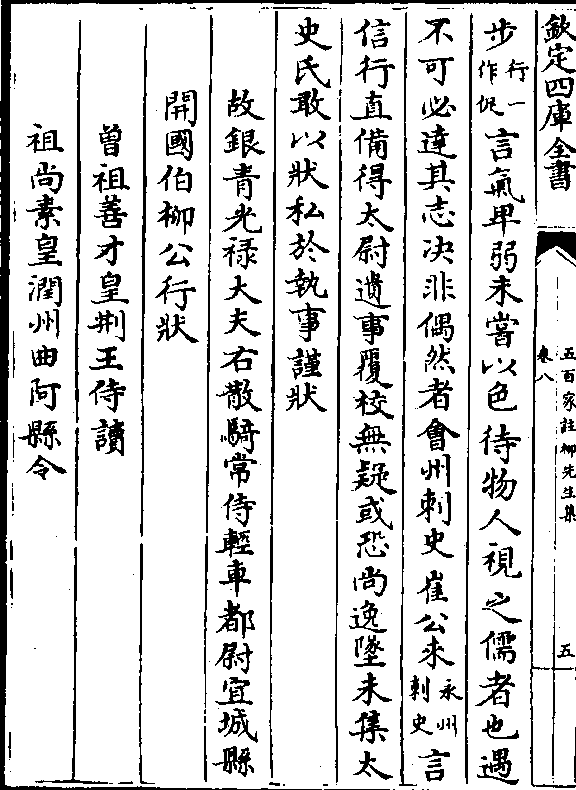 欽定四庫全書
五百家註柳先生集
卷八
五
步行一作俛言氣卑弱未嘗以色待物人視之儒者也遇
不可必達其志决非偶然者會州刺史崔公来永州刺史言
信行直備得太尉遺事覆校無疑或恐尚逸墜未集太
史氏敢以狀私於執事謹狀
故銀青光禄大夫右散騎常侍輕車都尉宜城縣
開國伯柳公行狀
曾祖善才皇荆王侍讀
祖尚素皇潤州曲阿縣令